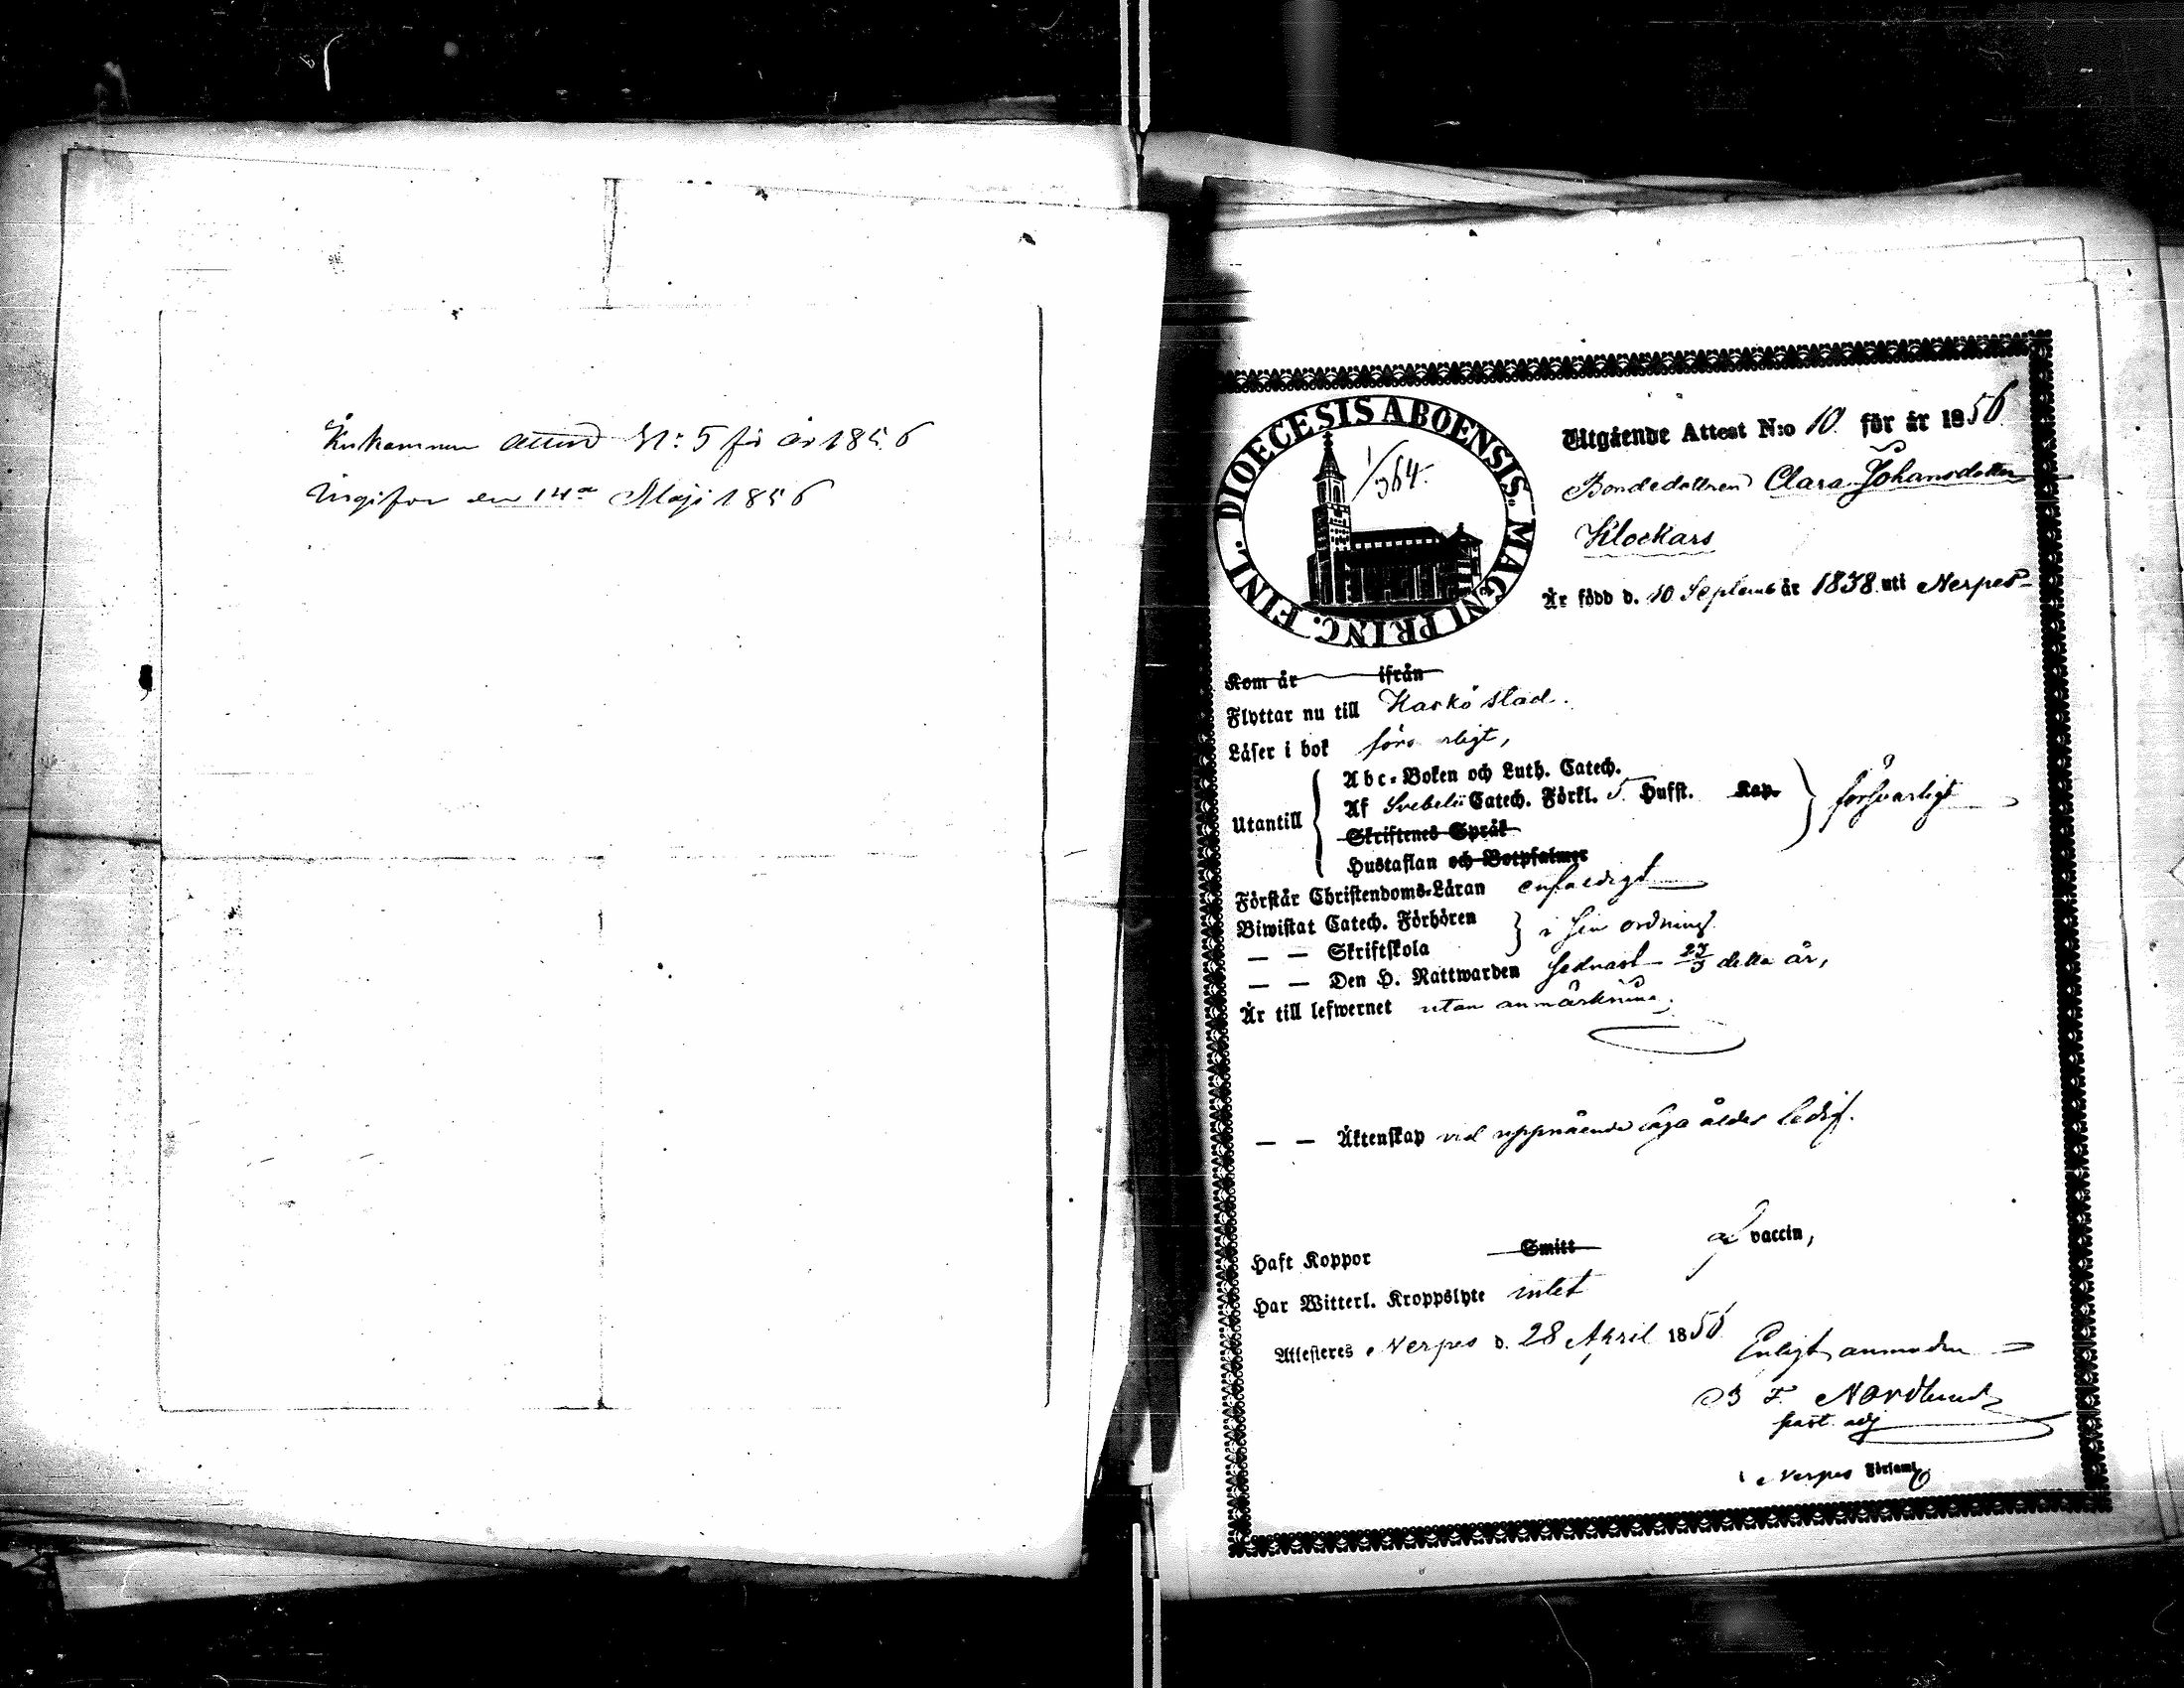 Inkommen attest N: 5 för år 1856
Uppgifven den 14de Maji 1856
DIOECESIS ABOENSIS. MAGNI PRINC. FINL.
1/364.
Utgående Attest N:o 10. för år 1856
Bondedottren Clara Johansdotter
Klockars
Är född d. 10 Septemb år 1838. uti Nerpes
Kom år ifrån
Flyttar nu till Kaskö stad.
Läser i bok förs arligt,
Utantill
Abc-Boken och Luth. Catech.
Af Svebelii Catech. Förkl. 5 Hufst. Kap.
Skriftenes Språk
Hustaflan och Botpsalmer
försvarligt
Förstår Christendoms-Läran enfaldigt
Biwistat Catech. Förhören
— — Skriftskola
i sin ordning
— — Den H. Nattwarden sednast 23/3 detta år,
Är till lefwernet utan anmärkning.
— — Äktenskap vid uppnående laga ålder ledig.
Haft Koppor Smitt af vaccin,
Har Witterl. Kroppslyte intet
Attesteres Nerpes d. 28 April 1856
Enligt anmodan
B F Nordlund
past. adj
i Nerpes Församl.